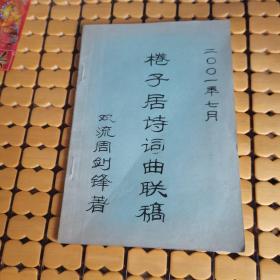 二〇〇一年七月
棬子居诗词曲联稿
双流周剑锋著